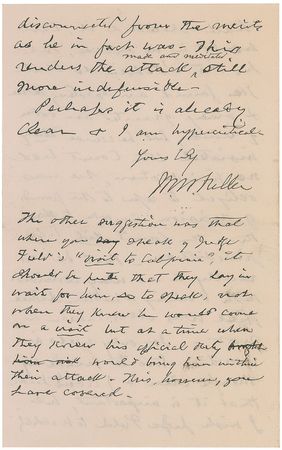 disconnected from the merits
as he in fact was - This
made and meditated
renders the attack, still
more indefensible -
Perhaps it is already
clear & I am hypercritical
Yours tly
MW Fuller
The other suggestion was that
where you say speak of Judge
Field's "visit to California", it
should be put that they lay in
wait for him, so to speak, not
when they knew he would come
on a visit but at a time when
they knew his official duty brought
him would bring him within
their attack - This, however, you
have covered -